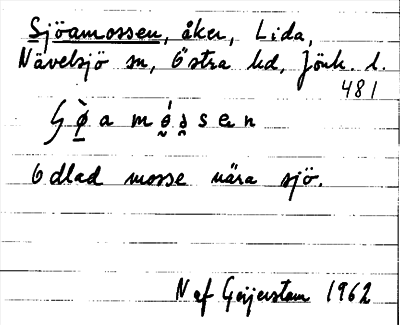 Sjöamossen, åker, Lida,
Nävelsjö sn, Östra hd, Jönk. l.
481
a m s s e n
Odlad mosse nära sjö.
N af Geijerstam 1962